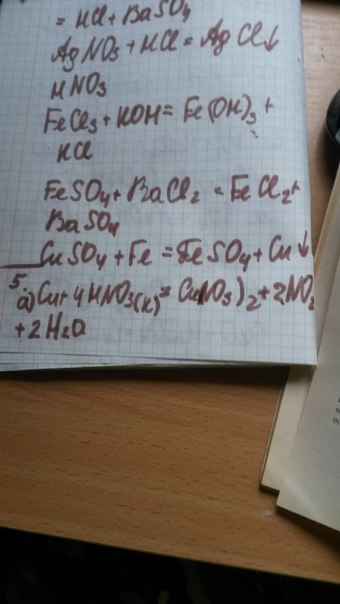 = HCl + BaSO4
AgNO3 + HCl = AgCl↓
HNO3
FeCl3 + KOH = Fe(OH)3 +
KCl
FeSO4 + BaCl2 = FeCl2 +
BaSO4
CuSO4 + Fe = FeSO4 + Cu↓
5.
a) Cu + 4HNO3(к) = Cu(NO3)2 + 2NO2
+ 2H2O